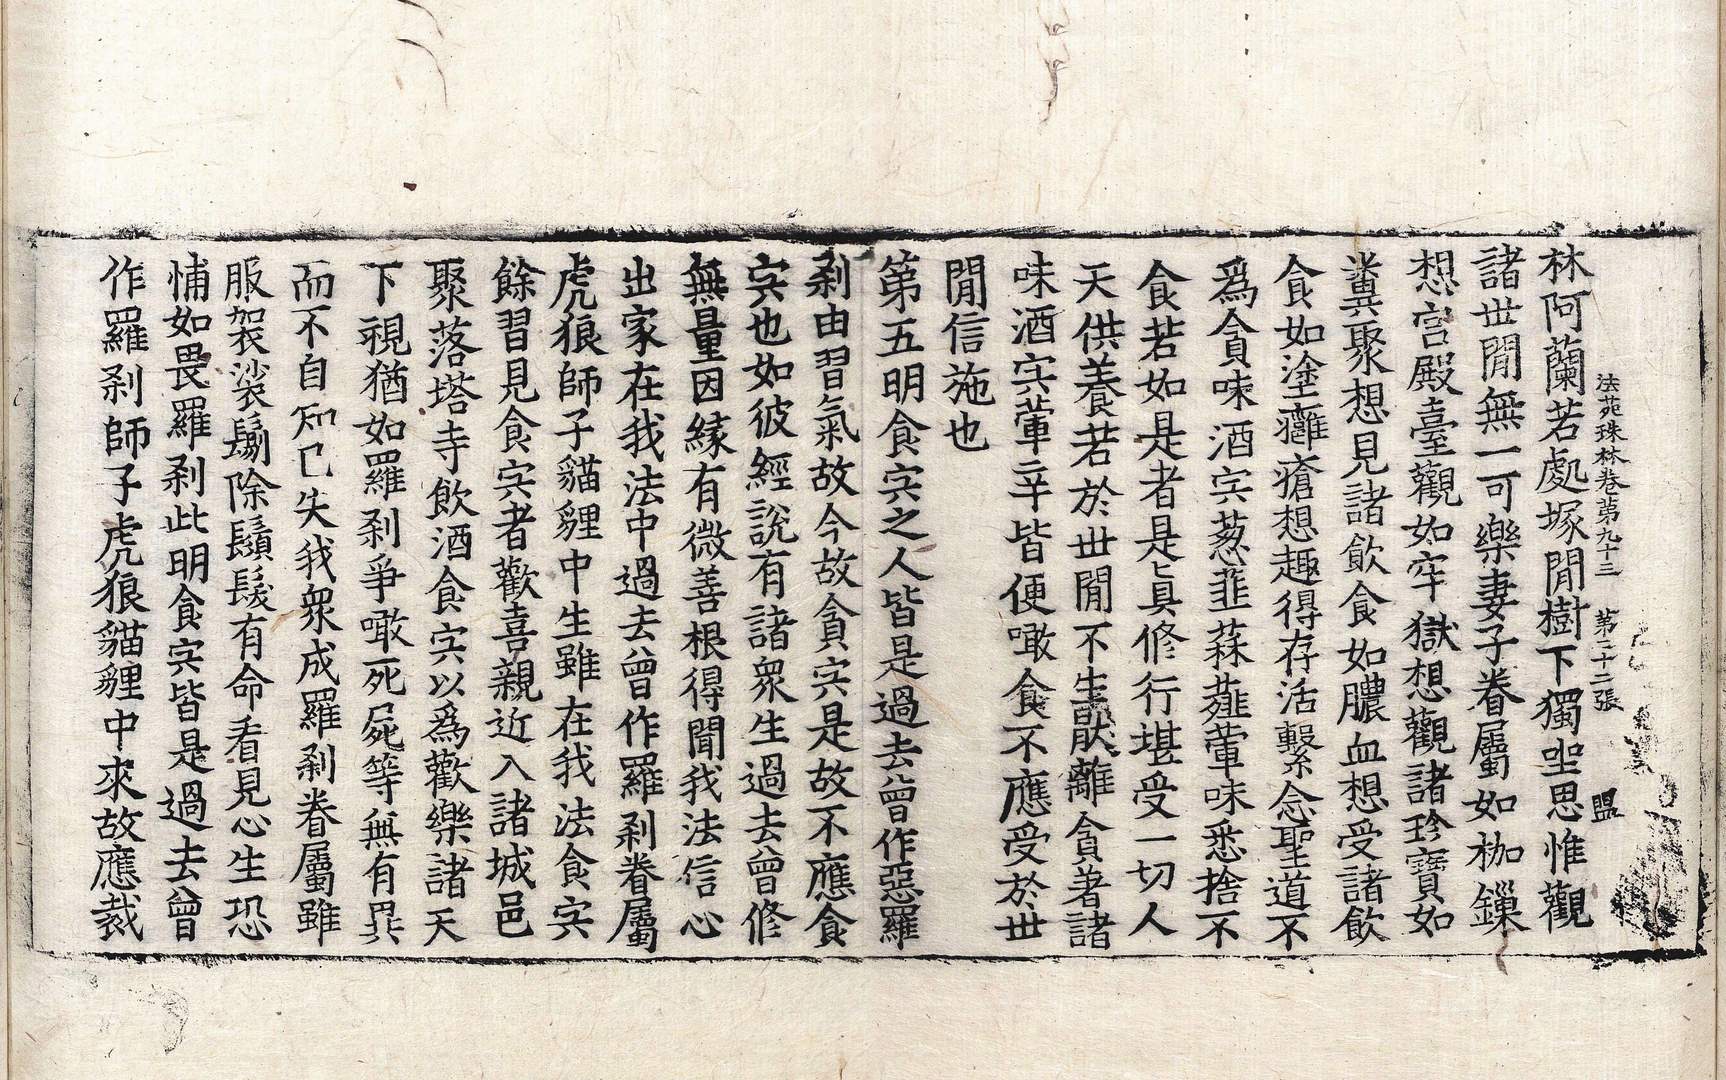 法苑珠林卷第九十三　第二十二張　盟
林阿蘭若處塚閒樹下獨坐思惟觀
諸世閒無一可樂妻子眷屬如枷鏁
想宫殿臺觀如牢獄想觀諸珍寶如
糞聚想見諸飲食如膿血想受諸飲
食如塗癰瘡想趣得存活繫念聖道不
爲貪味酒宍葱韮蒜薤葷味悉捨不
食若如是者是真修行堪受一切人
天供養若於世閒不生猒離貪著諸
味酒宍葷辛皆便噉食不應受於世
閒信施也
第五明食宍之人皆是過去曾作惡羅
刹由習氣故今故貪宍是故不應食
宍也如彼經說有諸衆生過去曾修
無量因緣有微善根得聞我法信心
出家在我法中過去曾作羅刹眷屬
虎狼師子貓貍中生雖在我法食宍
餘習見食宍者歡喜親近入諸城邑
聚落塔寺飲酒食宍以爲歡樂諸天
下視猶如羅刹爭噉死屍等無有異
而不自知已失我衆成羅刹眷屬雖
服袈裟鬀除鬚髮有命看見心生恐
悑如畏羅刹此明食宍皆是過去曾
作羅刹師子虎狼貓貍中來故應裁